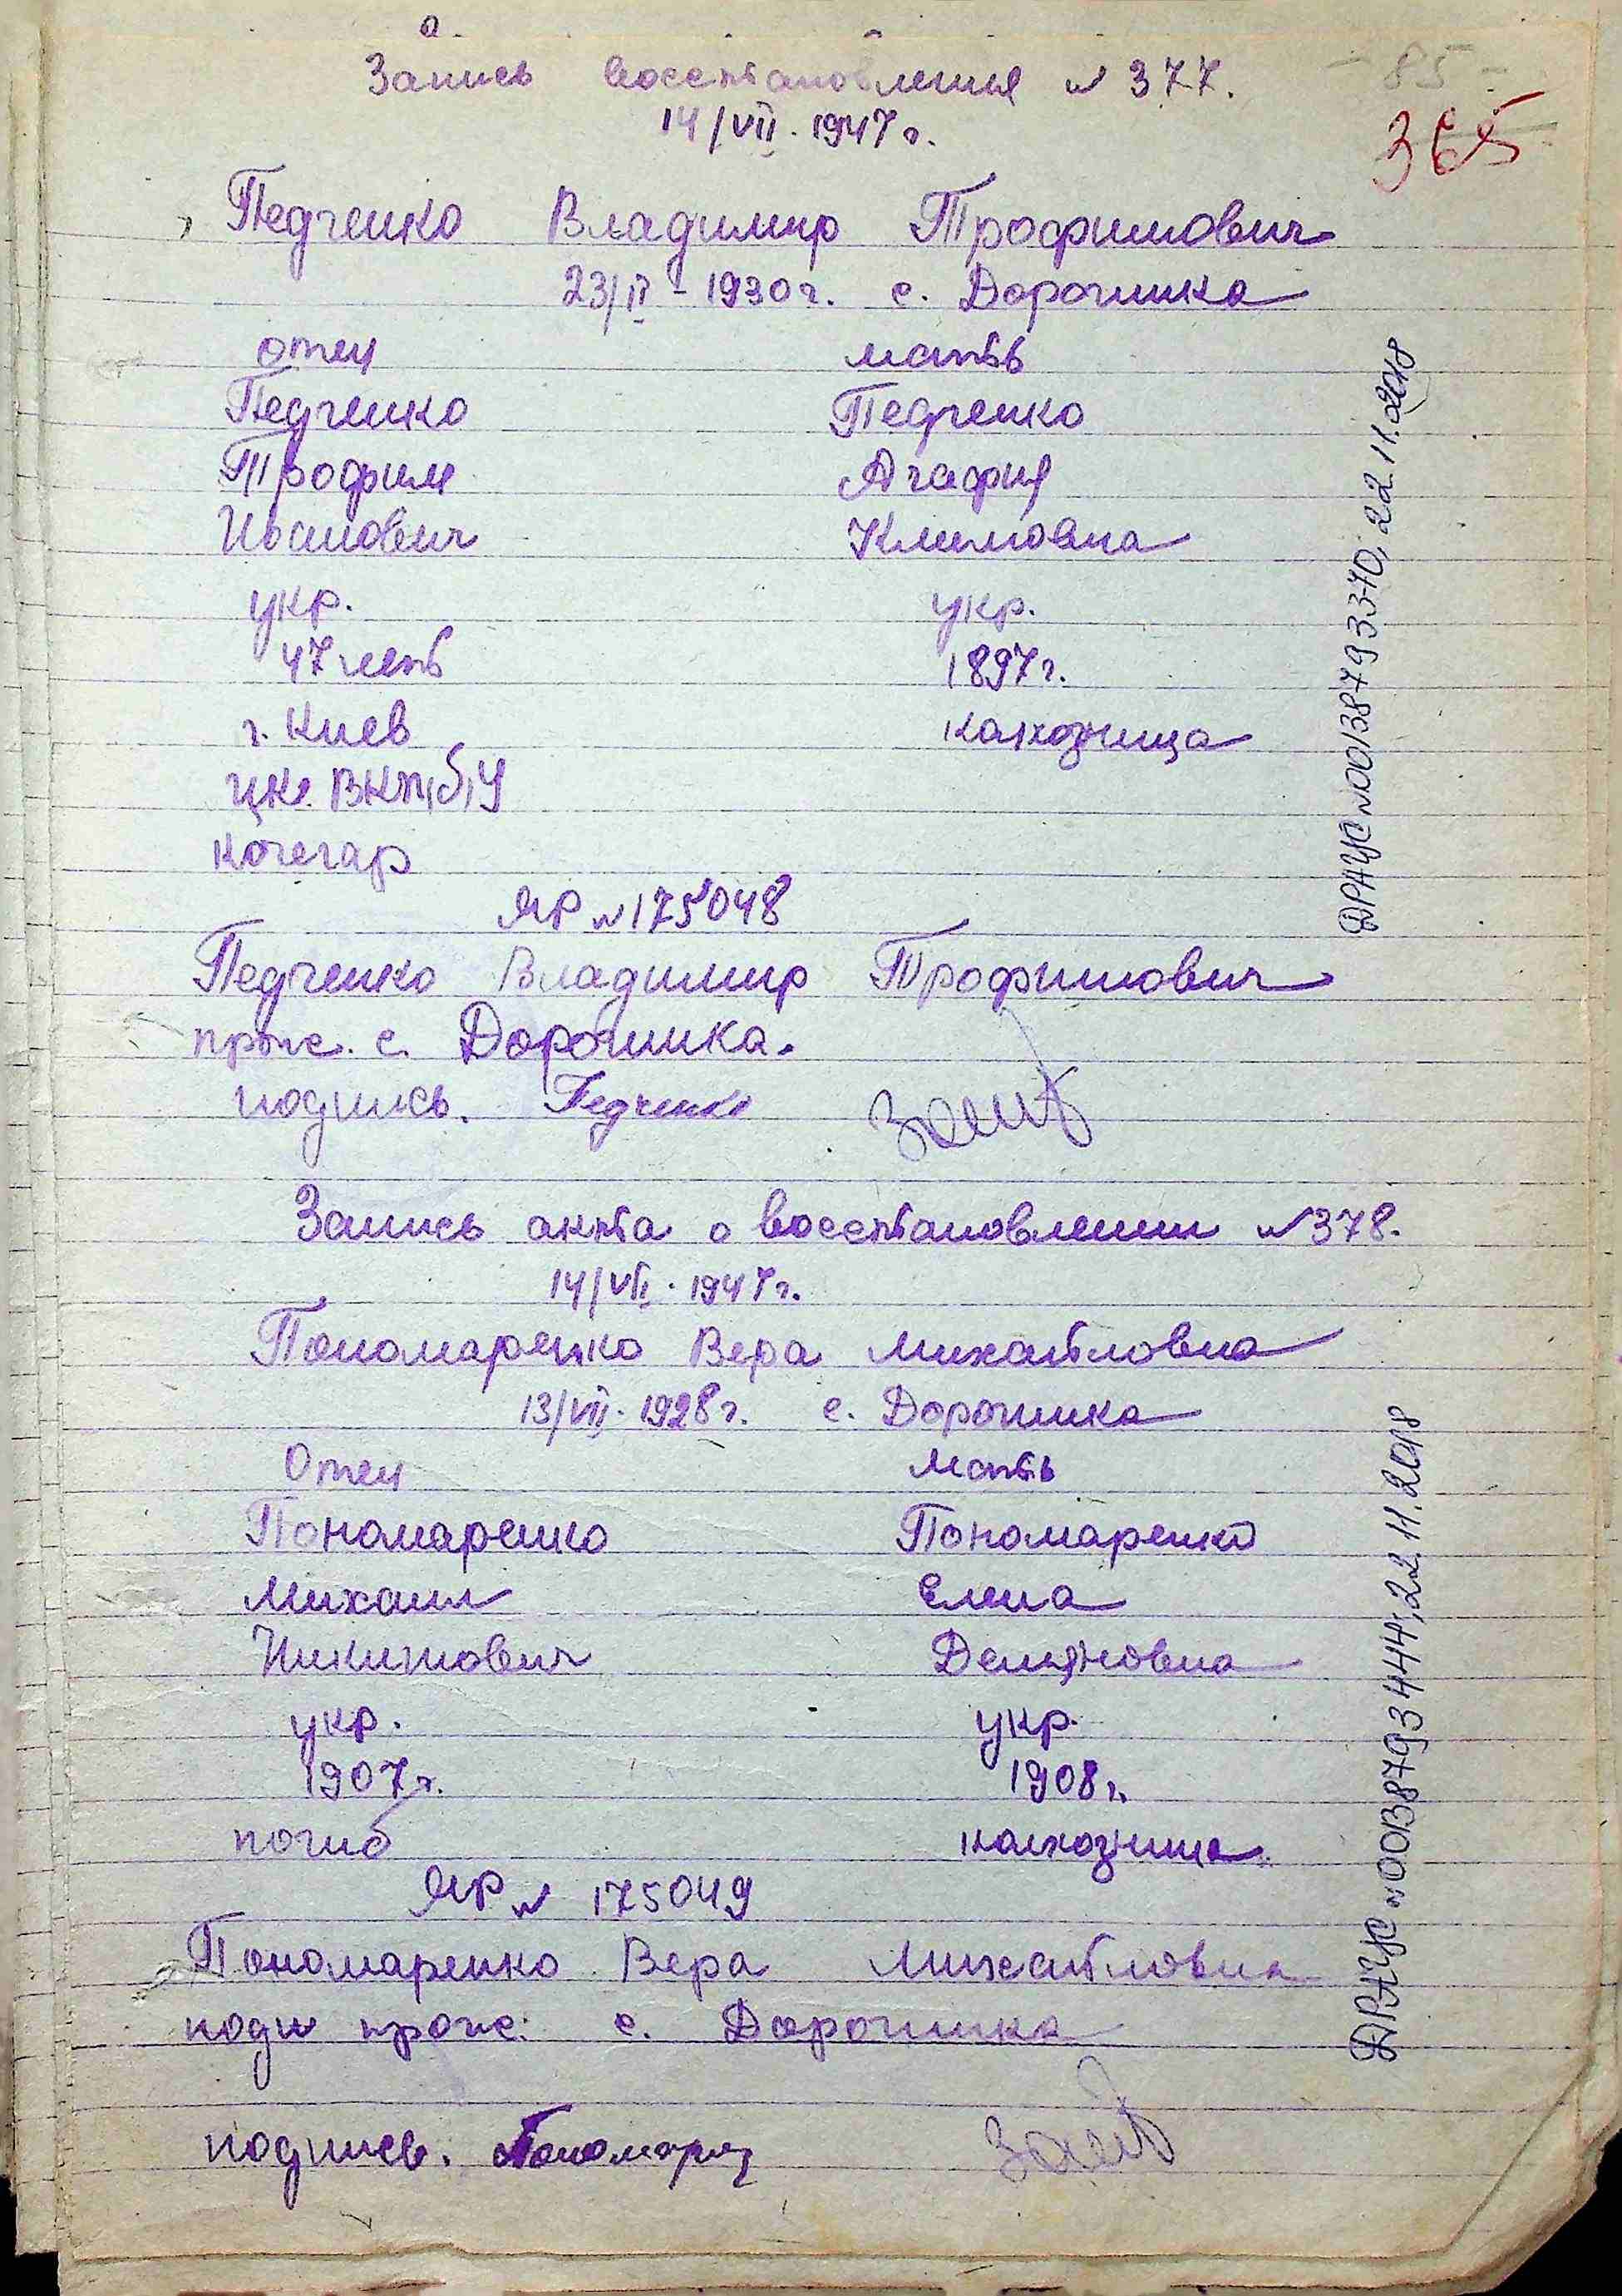 Запись восстановления № 377.
- 85 -
14/VII. 1947 г.
365
Педченко Владимир Трофимович
23/II - 1930 г. с. Дорогинка
отец мать
Педченко Педченко
Трофим Агафия
Иванович Климовна
укр. укр.
47 летъ 1897 г.
г. Киев колхозница
ЦК. ВКП(б)У
кочегар
ЯР № 175048
Педченко Владимир Трофимович
прож. с. Дорогинка.
подпись. Педченко
Запись акта о восстановлении № 378.
14/VII. 1947 г.
Пономаренко Вера Михайловна
13/VII. 1928 г. с. Дорогинка
Отец Мать
Пономаренко Пономаренко
Михаил Елена
Никитович Демяновна
укр. укр.
1907 г. 1908 г.
погиб колхозница
ЯР № 175049
Пономаренко Вера Михайловна
прож. с. Дорогинка
подпись.
ДРАЦС №00138793370, 22.11.2018
ДРАЦС №00138793444, 22.11.2018